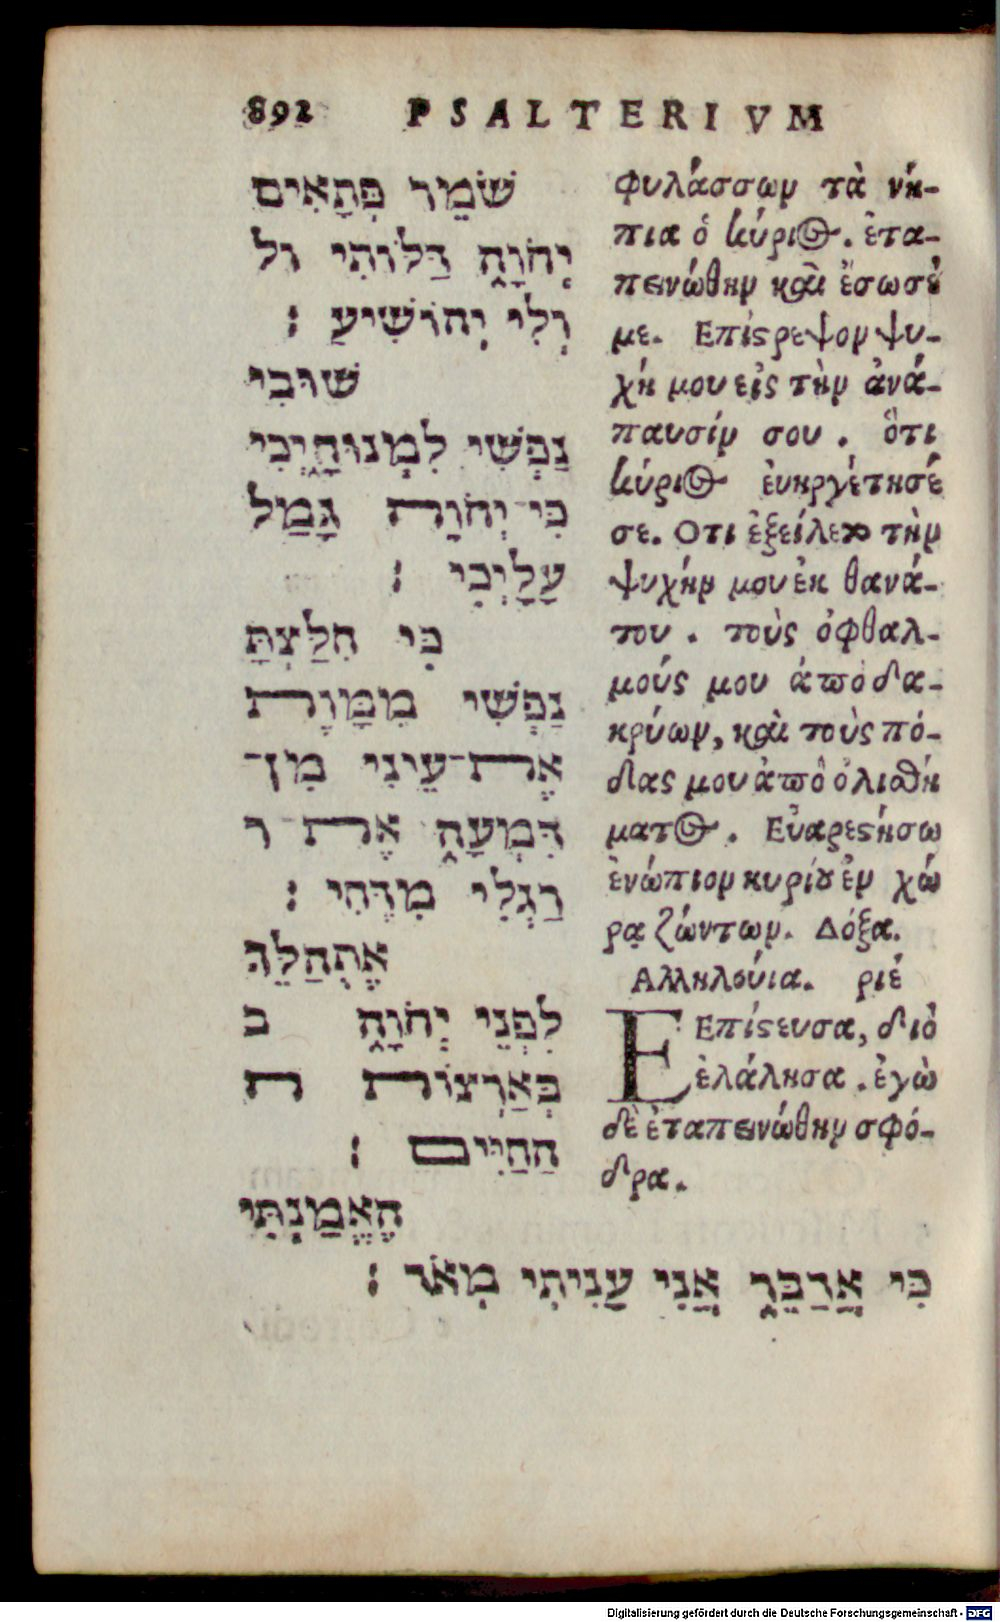 892 PSALTERIVM
שֹׁמֵר פְּתָאִים
יְהֹוָה דַּלּוֹתִי ול
וְלִי יְהוֹשִׁיעַ :
שׁוּבִי
נַפְשִׁי לִמְנוּחָיְכִי
כִּי־יְהֹוָה גָּמַל
עָלָיְכִי :
כִּי חִלַּצְתָּ
נַפְשִׁי מִמָּוֶת
אֶת־עֵינִי מִן־
דִּמְעָה אֶת־ר
רַגְלִי מִדֶּחִי :
אֶתְהַלֵּךְ
לִפְנֵי יְהֹוָה ב
בְּאַרְצוֹת ה
הַחַיִּים :
הֶאֱמַנְתִּי
כִּי אֲדַבֵּר אֲנִי עָנִיתִי מְאֹד :
φυλάσσων τὰ νή-
πια ὁ κύριος. ἐτα-
πεινώθην καὶ ἔσωσέ
με. Επίστρεψον ψυ-
χή μου εἰς τὴν ἀνά-
παυσίν σου . ὅτι
κύριος ἐυηργέτησέ
σε. Οτι ἐξείλετο τὴν
ψυχήν μου ἐκ θανά-
του . τοὺς ὀφθαλ-
μούς μου ἀπὸ δα-
κρύων, καὶ τοὺς πό-
δας μου ἀπὸ ὀλισθή
ματος . Εὐαρεστήσω
ἐνώπιον κυρίου ἐν χώ
ρᾳ ζώντων. Δόξα.
Αλληλούια. ριέ
ΕΕπίστευσα, διὸ
ἐλάλησα . ἐγὼ
δὲ ἐταπεινώθην σφό-
δρα.
Digitalisierung gefördert durch die Deutsche Forschungsgemeinschaft - DFG